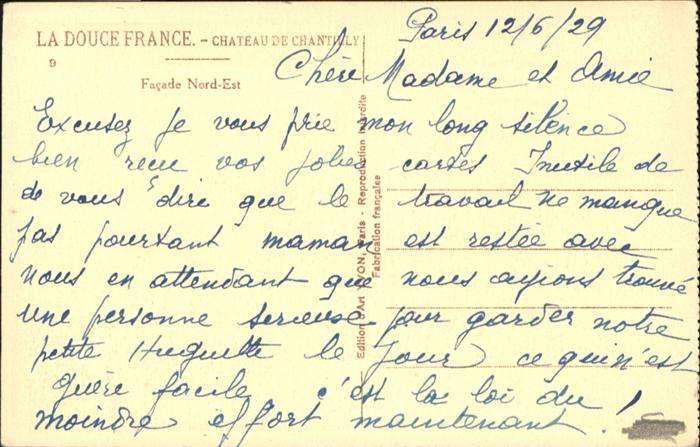 LA DOUCE FRANCE. - CHATEAU DE CHANTILLY
9
Façade Nord-Est
Paris 12/6/29
Chère Madame et Amie
Excusez je vous prie mon long silence
bien recu vos jolies cartes Inutile de
de vous dire que le travail ne manque
pas pourtant maman est restée avec
nous en attendant que nous ayions trouvé
une personne serieuse pour garder notre
petite Huguette le jour ce qui n'est
guère facile c'est la loi du
moindre effort maintenant !
Edition d'Art YVON, Paris - Reproduction Interdite
Fabrication française